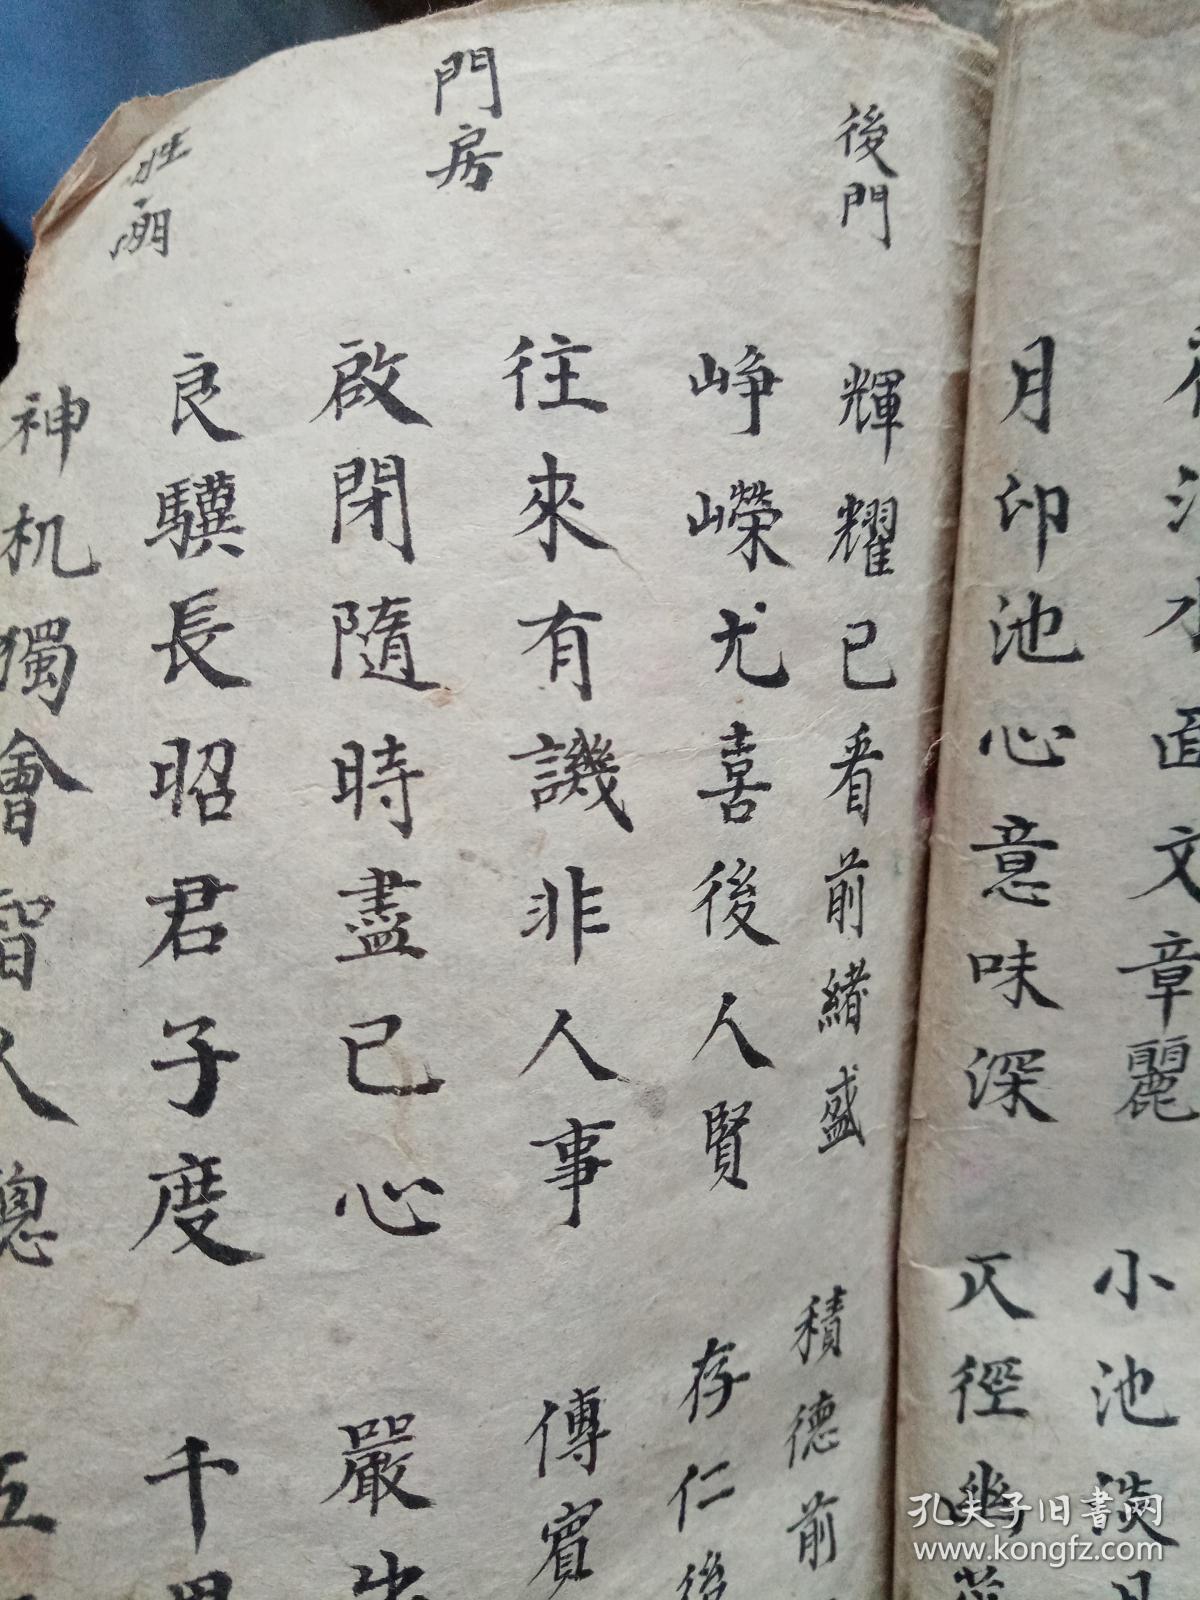 水面文章麗
小池淡
月印池心意味深
仄徑幽
後門
輝耀已看前緒盛
積德前
崢嶸尤喜後人賢
存仁後
門房
往來有譏非人事
傳賓
啟閉隨時盡己心
嚴出
良驥長昭君子度
千里
神机獨會智人聰
孔夫子旧書网
www.kongfz.com